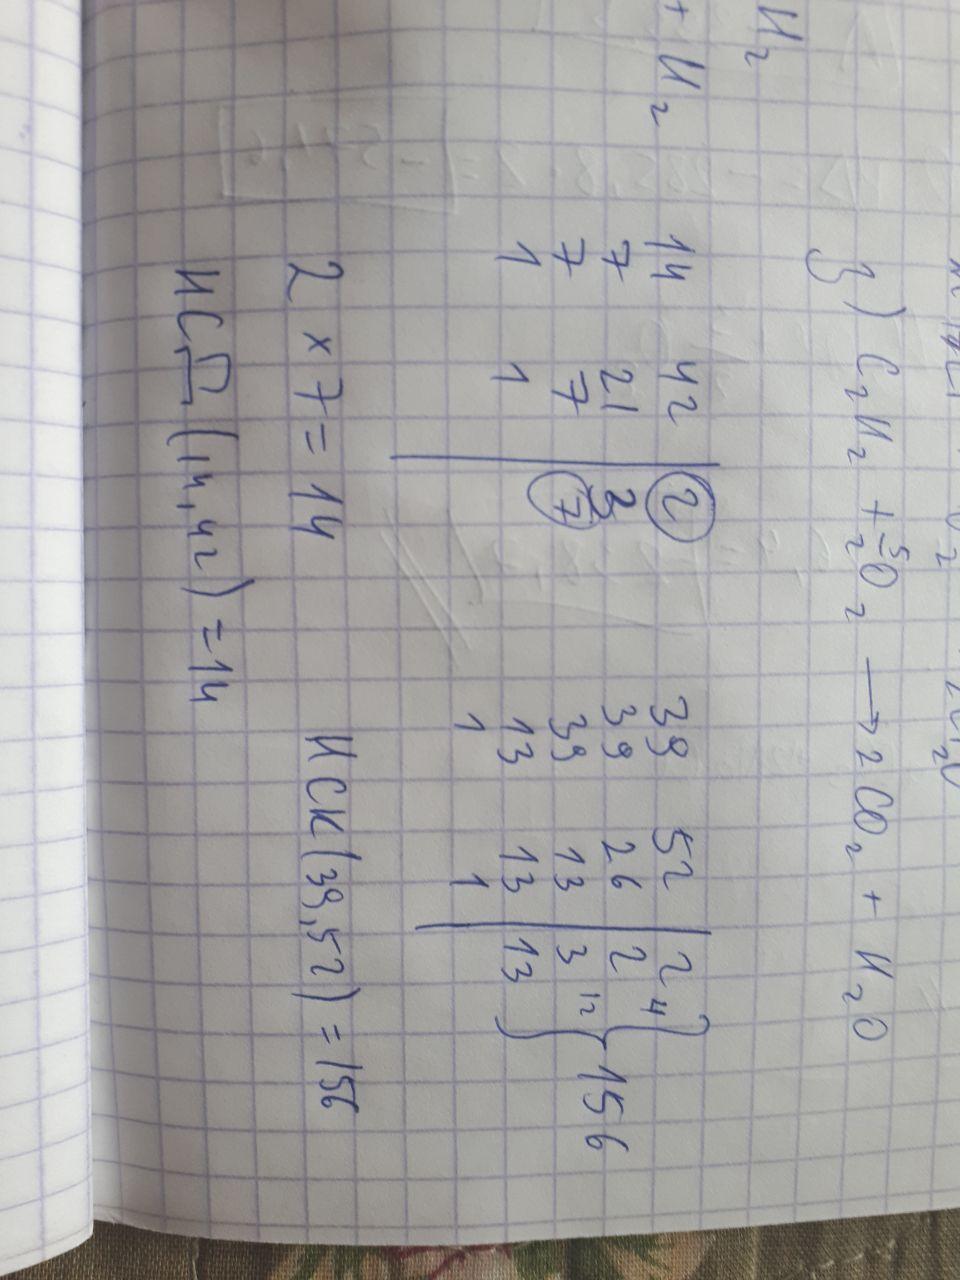 H₂
+ H₂
з) C₂H₂ + 5/2 O₂ → 2CO₂ + H₂O
14 42 | 2
7 21 | 3
7 7 | 7
1 1
39 52 | 2
39 26 | 2 4
39 13 | 3 12
13 13 | 13
1 1
} 156
2 × 7 = 14
НСК (39,52) = 156
НСД (14,42) = 14